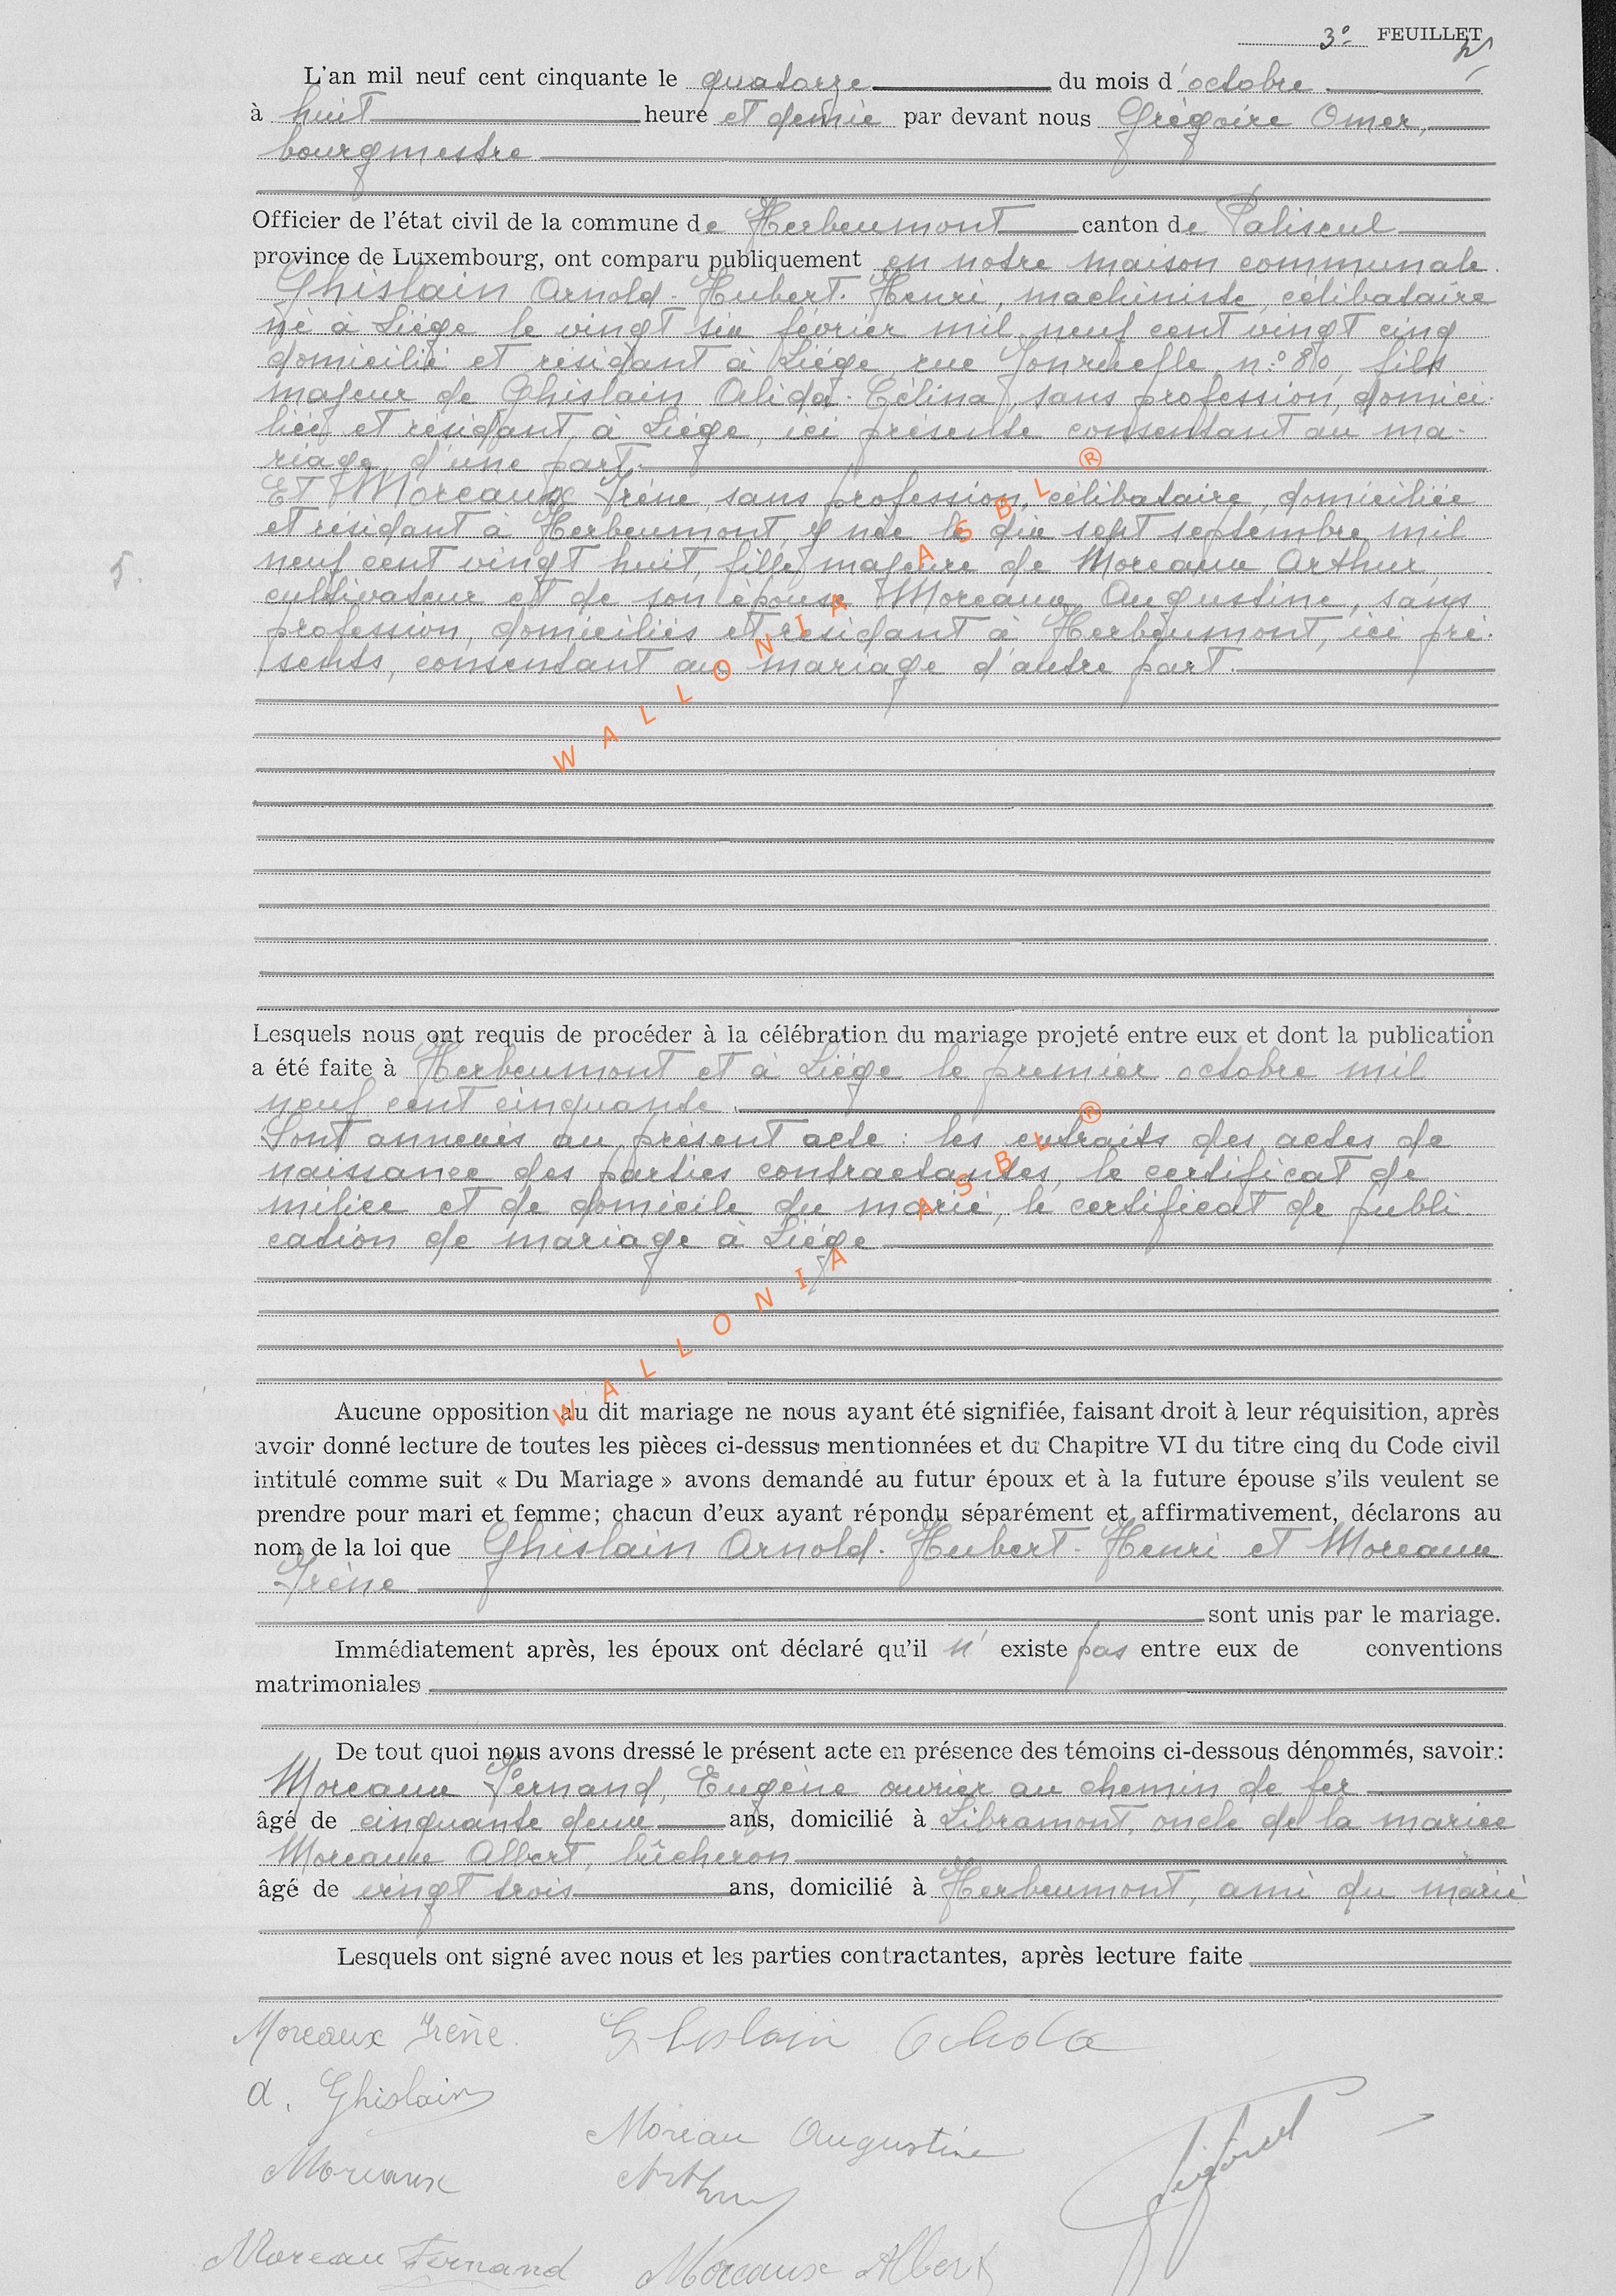 3e FEUILLET
L'an mil neuf cent cinquante le quatorze du mois d'octobre
à huit heure et demie par devant nous Grégoire Omer,
bourgmestre
Officier de l'état civil de la commune de Herbeumont canton de Paliseul
province de Luxembourg, ont comparu publiquement en notre maison communale
Ghislain Arnold-Hubert-Henri, machiniste, célibataire
né à Liége le vingt six février mil neuf cent vingt cinq
domicilié et résidant à Liége, rue n:° 80, fils
majeur de Ghislain Alida-Célina, sans profession, domici-
liée et résidant à Liége, ici présente consentant au ma-
riage, d'une part.
Et Moreaux Irène, sans profession, célibataire, domiciliée
et résidant à Herbeumont, y née le dix sept septembre mil
neuf cent vingt huit, fille majeure de Moreaux Arthur,
5.
cultivateur et de son épouse Moreaux Augustine, sans
profession, domiciliés et résidant à Herbeumont, ici pré-
sents, consentant au mariage d'autre part.
WALLONIA ASBL ®
Lesquels nous ont requis de procéder à la célébration du mariage projeté entre eux et dont la publication
a été faite à Herbeumont et à Liége le premier octobre mil
neuf cent cinquante.
Sont annexés au présent acte : les extraits des actes de
naissance des parties contractantes, le certificat de
milice et de domicile du marié, le certificat de publi-
cation de mariage à Liége
WALLONIA ASBL ®
Aucune opposition au dit mariage ne nous ayant été signifiée, faisant droit à leur réquisition, après
avoir donné lecture de toutes les pièces ci-dessus mentionnées et du Chapitre VI du titre cinq du Code civil
intitulé comme suit « Du Mariage » avons demandé au futur époux et à la future épouse s'ils veulent se
prendre pour mari et femme; chacun d'eux ayant répondu séparément et affirmativement, déclarons au
nom de la loi que Ghislain Arnold-Hubert-Henri et Moreaux
Irène
sont unis par le mariage.
Immédiatement après, les époux ont déclaré qu'il n' existe pas entre eux de conventions
matrimoniales
De tout quoi nous avons dressé le présent acte en présence des témoins ci-dessous dénommés, savoir:
Moreaux Fernand, Eugène ouvrier au chemin de fer
âgé de cinquante deux ans, domicilié à Libramont, oncle de la mariée
Moreaux Albert, bûcheron
âgé de vingt trois ans, domicilié à Herbeumont, ami du marié
Lesquels ont signé avec nous et les parties contractantes, après lecture faite
Moreaux Irène. Ghislain
A. Ghislain
Moreau Augustine
Moreaux Arthur
Moreau Fernand Moreaux Albert